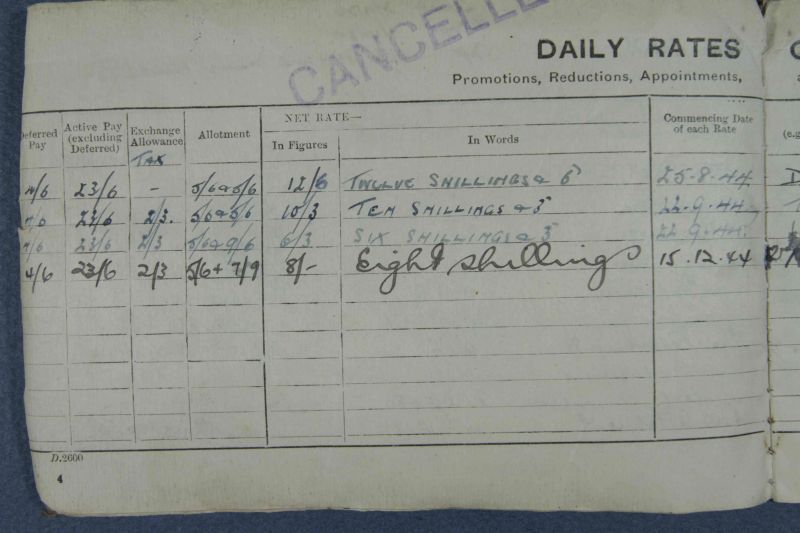 CANCELLE
DAILY RATES
Promotions, Reductions, Appointments,
Deferred Pay Active Pay (excluding Deferred) Exchange Allowance Tax Allotment NET RATE— In Figures In Words Commencing Date of each Rate (e.g
4/6 23/6 - 5/6 & 5/6 12/6 TWELVE SHILLINGS & 6 25.8.44
23/6 2/3. 5/6 & 5/6 10/3 TEN SHILLINGS & 3 22.9.44
23/6 2/3 5/6 & 9/6 6/3 SIX SHILLINGS & 3 22.9.44.
4/6 23/6 2/3 5/6 + 7/9 8/- Eight shillings 15.12.44
D.2600
4